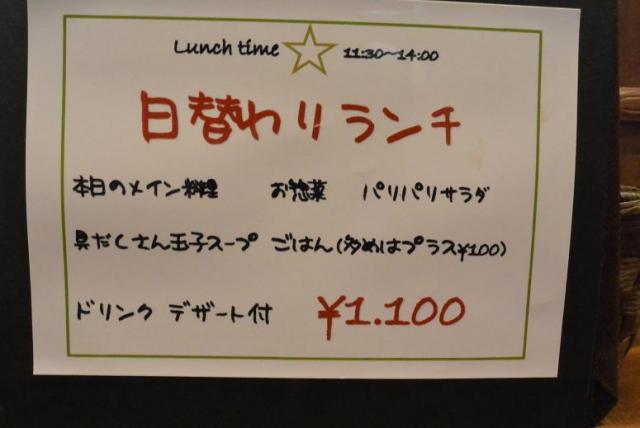 Lunch time ☆ 11:30~14:00
日替わりランチ
本日のメイン料理 お惣菜 パリパリサラダ
具だくさん玉子スープ ごはん(多めはプラス¥100)
ドリンク デザート付 ¥1.100